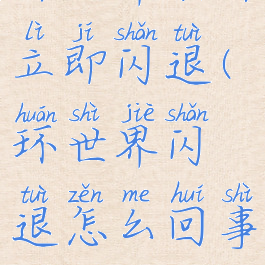 lì jí shǎn tuì
立即闪退(
huán shì jiè shǎn
环世界闪
tuì zěn me huí shì
退怎么回事